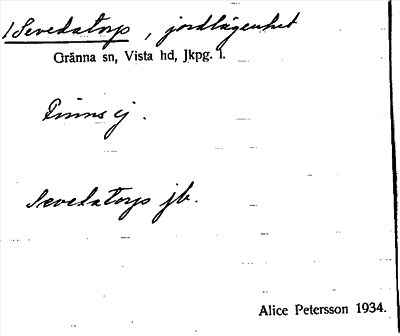 /Sevedatorp, jordlägenhet
Gränna sn, Vista hd, Jkpg. l.
Finns ej.
Sevedatorp jb.
Alice Petersson 1934.